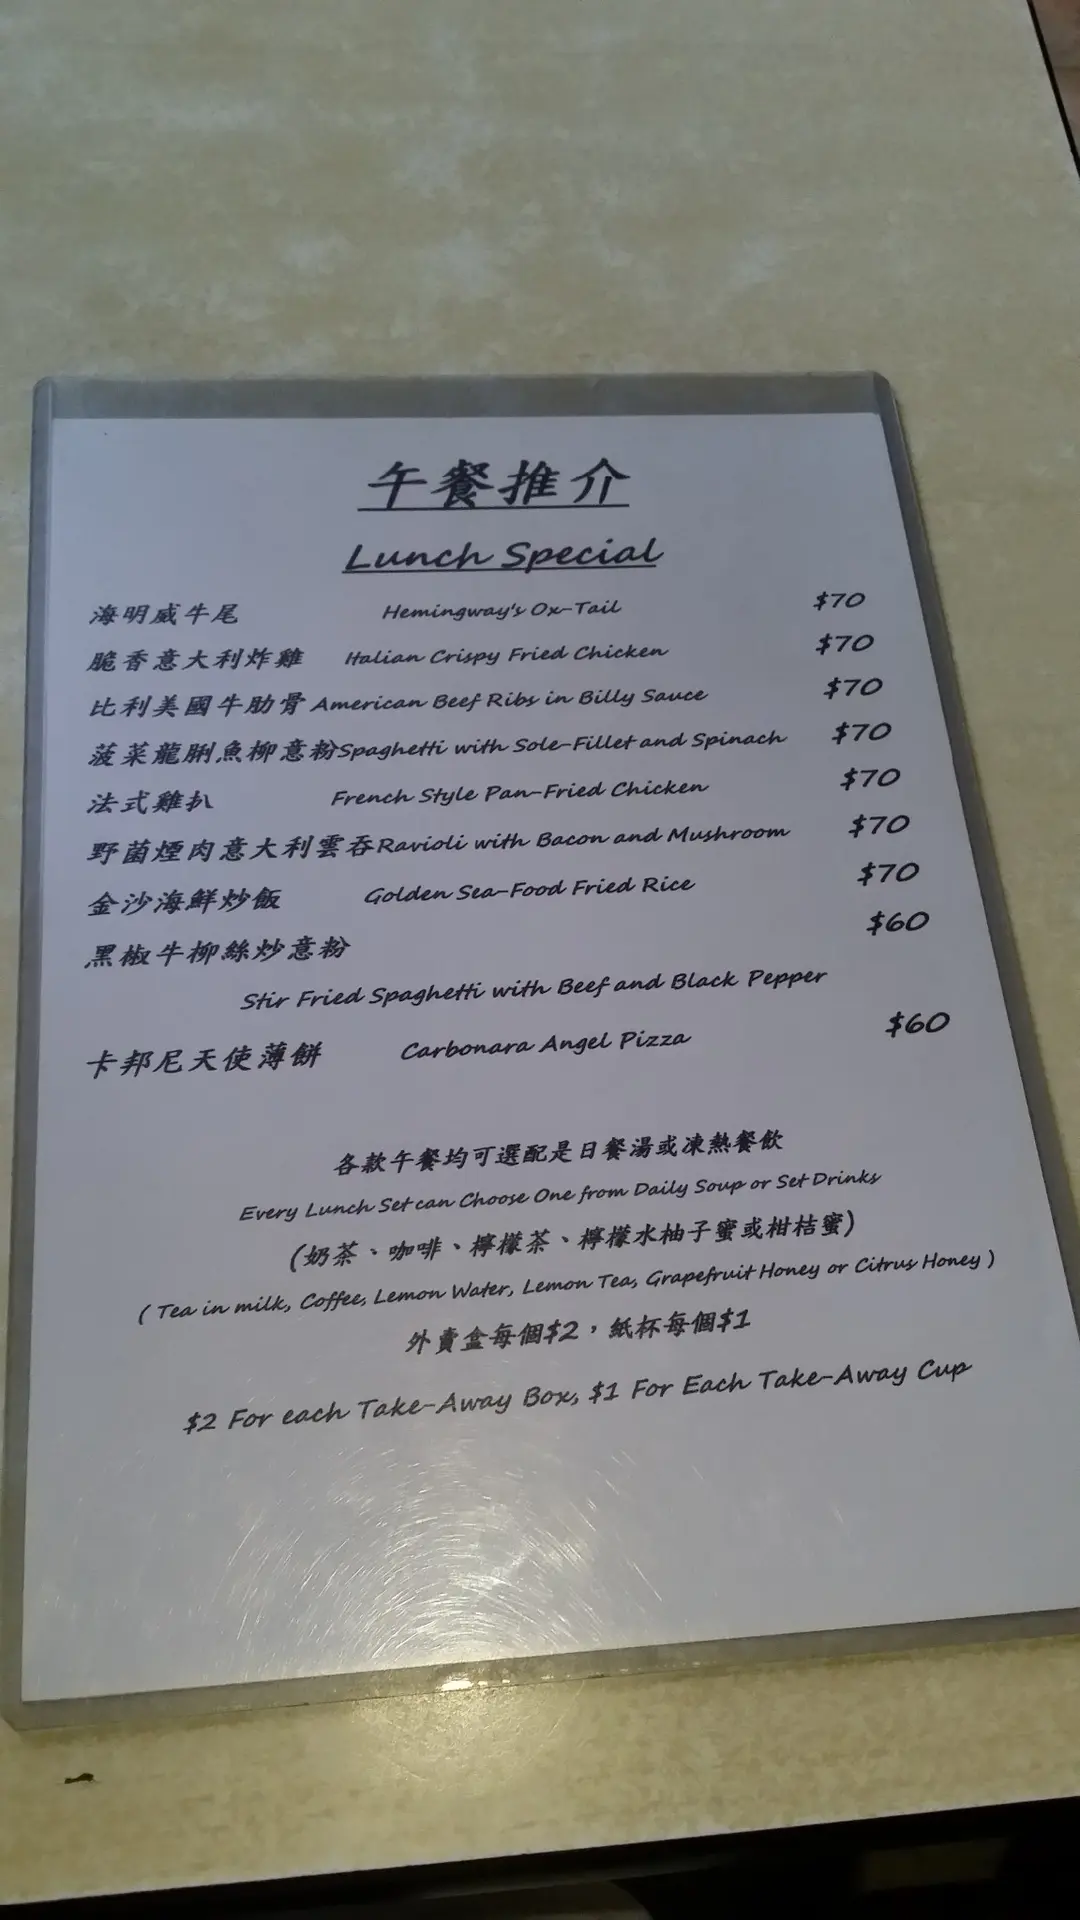 午餐推介
Lunch Special
海明威牛尾 Hemingway's Ox-Tail $70
脆香意大利炸雞 Italian Crispy Fried Chicken $70
比利美國牛肋骨 American Beef Ribs in Billy Sauce $70
菠菜龍脷魚柳意粉 Spaghetti with Sole-Fillet and Spinach $70
法式雞扒 French Style Pan-Fried Chicken $70
野菌煙肉意大利雲吞 Ravioli with Bacon and Mushroom $70
金沙海鮮炒飯 Golden Sea-Food Fried Rice $70
黑椒牛柳絲炒意粉 $60
Stir Fried Spaghetti with Beef and Black Pepper
卡邦尼天使薄餅 Carbonara Angel Pizza $60
各款午餐均可選配是日餐湯或凍熱餐飲
Every Lunch Set can Choose One from Daily Soup or Set Drinks
(奶茶、咖啡、檸檬茶、檸檬水柚子蜜或柑桔蜜)
( Tea in milk, Coffee, Lemon Water, Lemon Tea, Grapefruit Honey or Citrus Honey )
外賣盒每個$2，紙杯每個$1
$2 For each Take-Away Box, $1 For Each Take-Away Cup